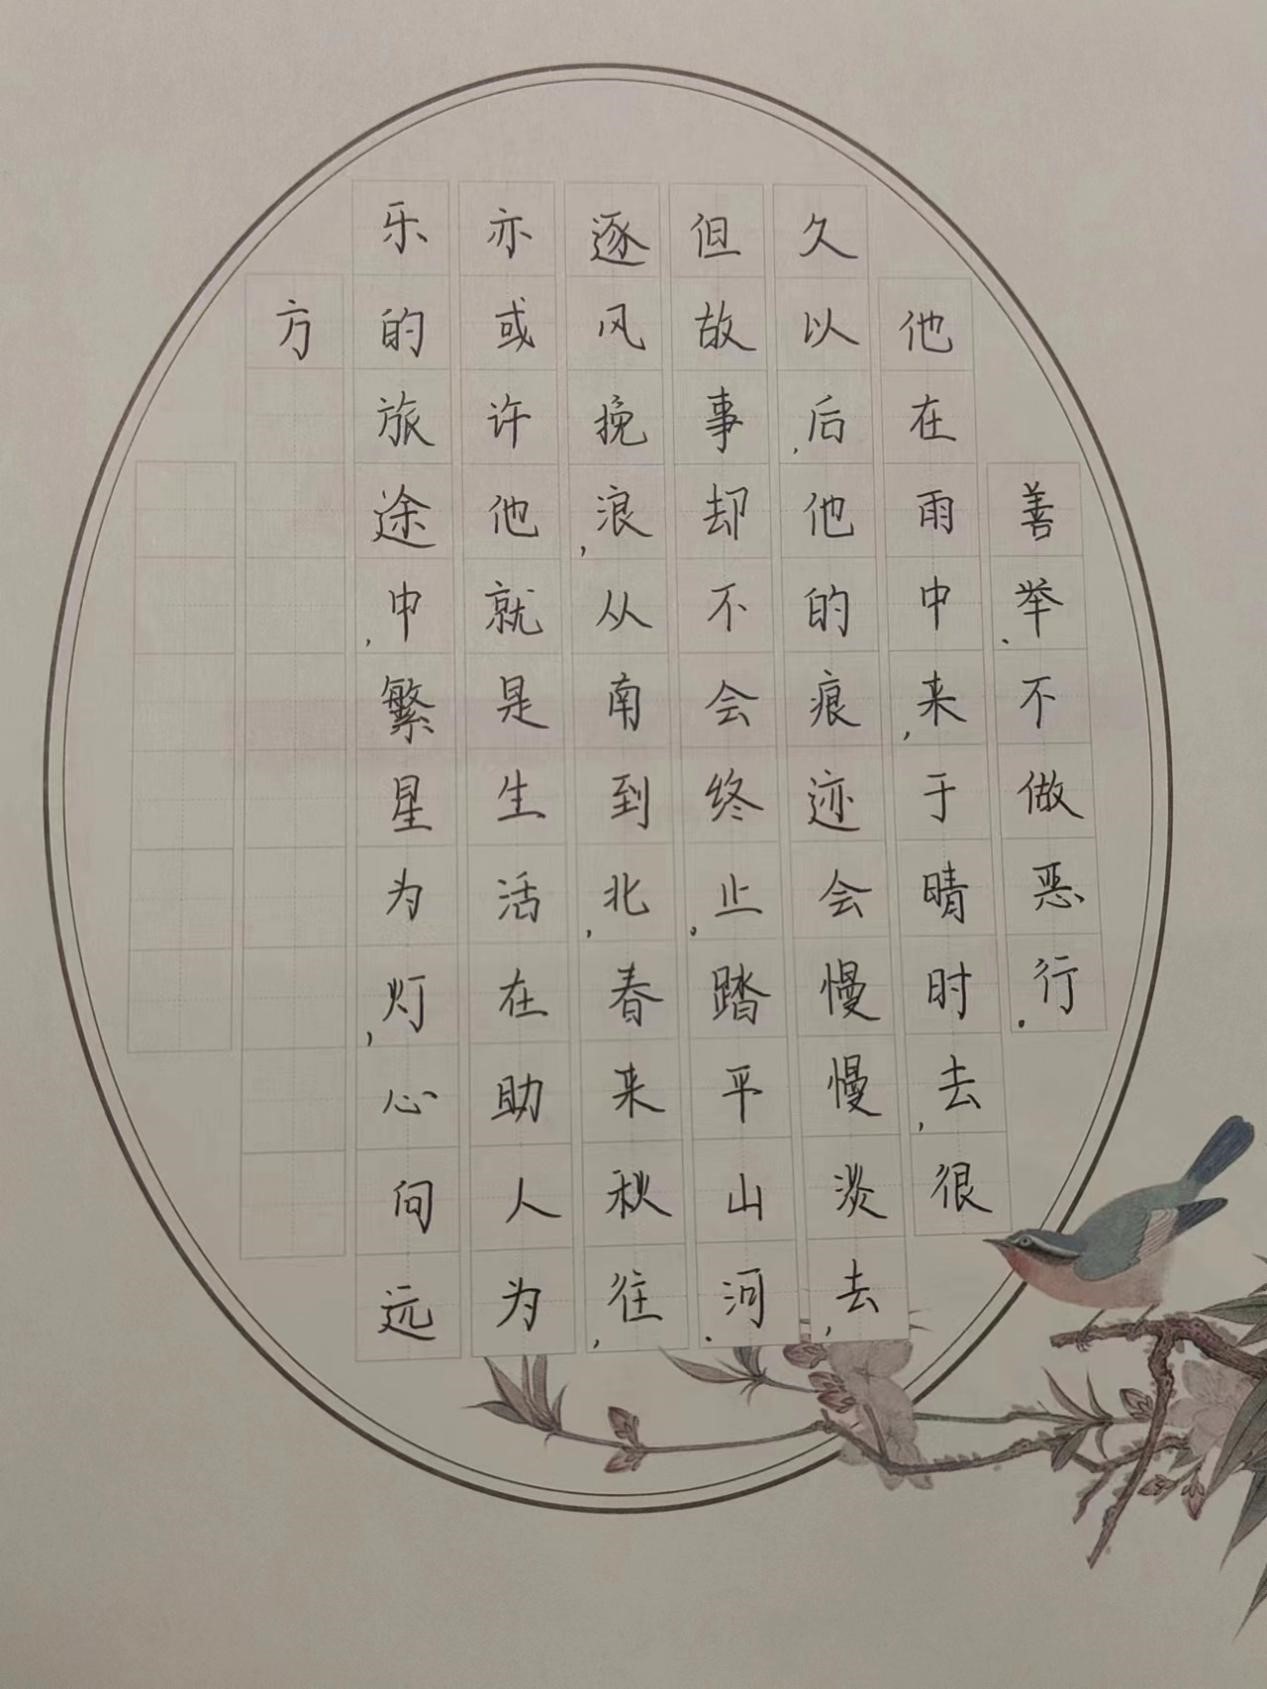 善举、不做恶行。
他在雨中来，于晴时去，很
久以后，他的痕迹会慢慢淡去，
但故事却不会终止。踏平山河，
逐风挽浪，从南到北，春来秋往，
亦或许他就是生活在助人为
乐的旅途中，繁星为灯，心向远
方